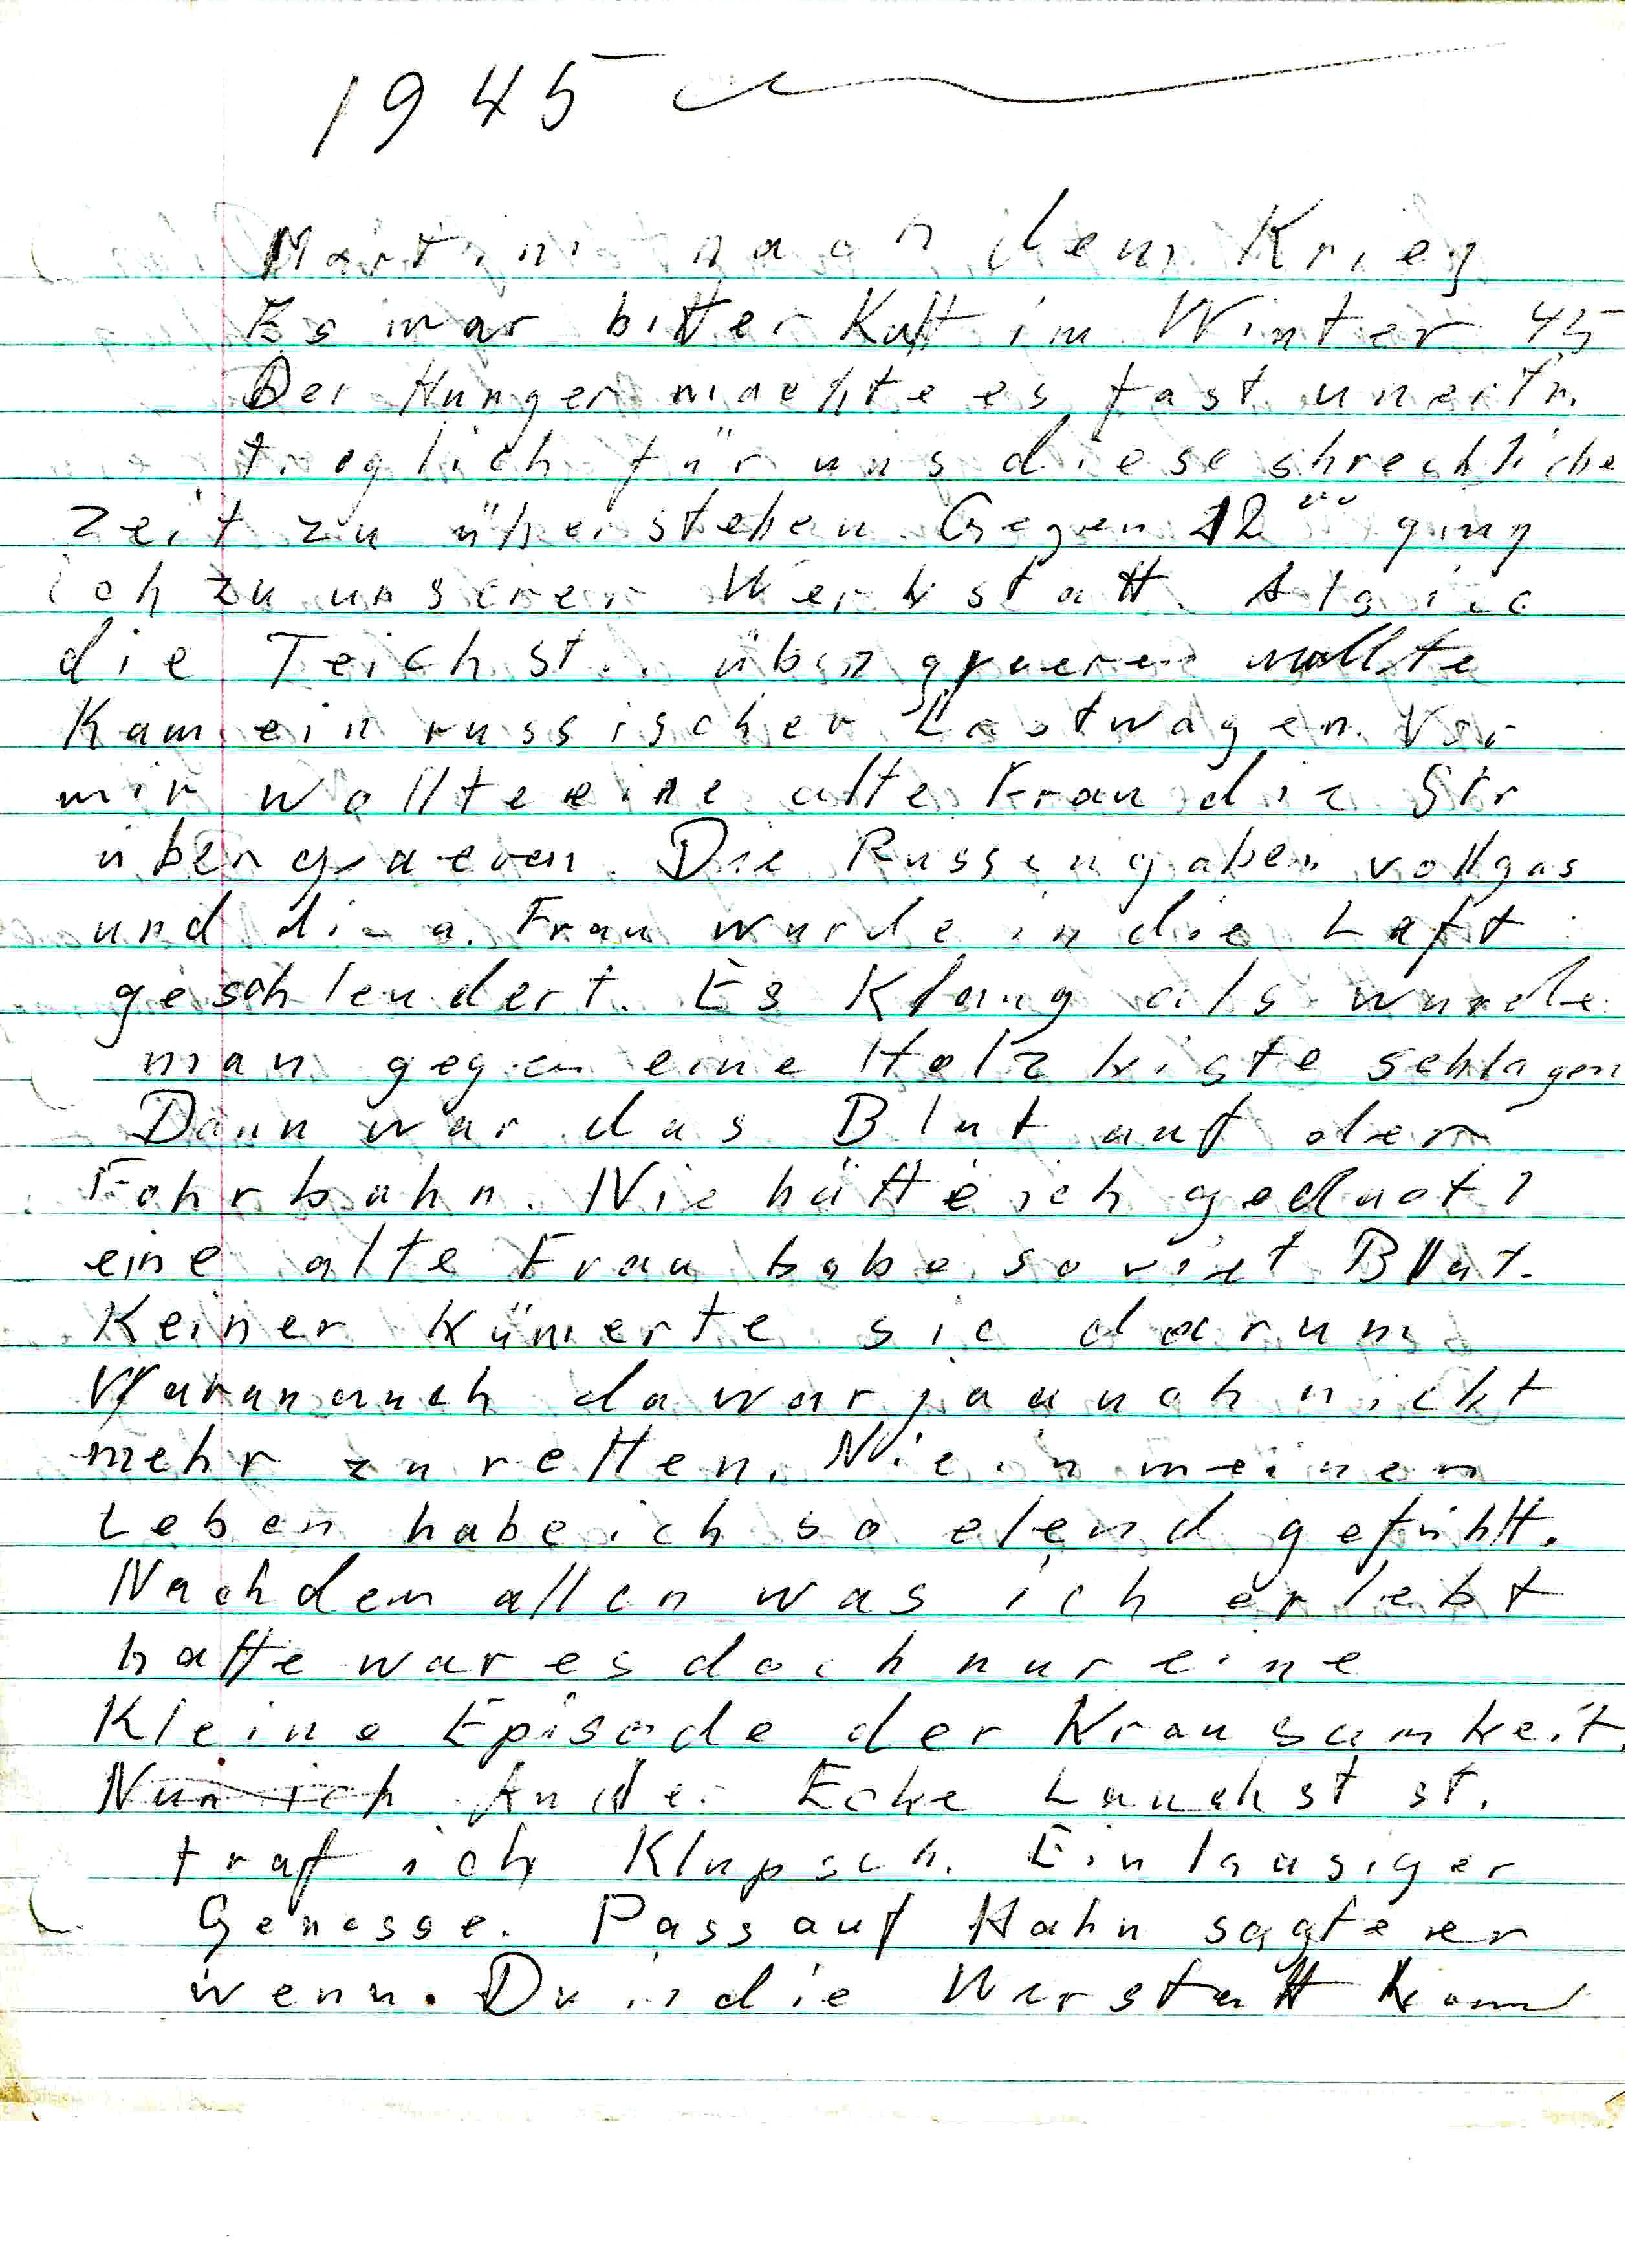 1945
Martini nach dem Krieg
Es war bitter Kalt im Winter 45
Der Hunger machte es fast
träglich für uns diese shrechliche
Zeit zu überstehen Gegen 12 00 ging
ich zu unserer Werkstatt. Als ic
die Teichst.. überqueren wollte
Kam ein russischer Lastwagen. Vor
mir wollte eine alte Frau die Str
überqueren. Die Russen gaben vollgas
und die a. Frau wurde in die Luft
geschleudert. Es Klang als wurde
man gegen eine Holzkiste schlagen
Dann war das Blut auf der
Fahrbahn. Nie hätte ich gedacht
eine alte Frau habe soviet Blut.
Keiner kümerte sic darum
Warum auch da war ja auch nicht
mehr zu retten. Nie in meinem
Leben habe ich so elend gefühlt.
Nach dem allen was ich erlebt
hatte war es doch nur eine
Kleine Episode der Krausamkeit.
Nun ich An der Ecke Lauchst st.
traf ich Klupsch. Ein lausiger
Genosse. Pass auf Hahn sagte er
wenn. Du in die Werstatt komm